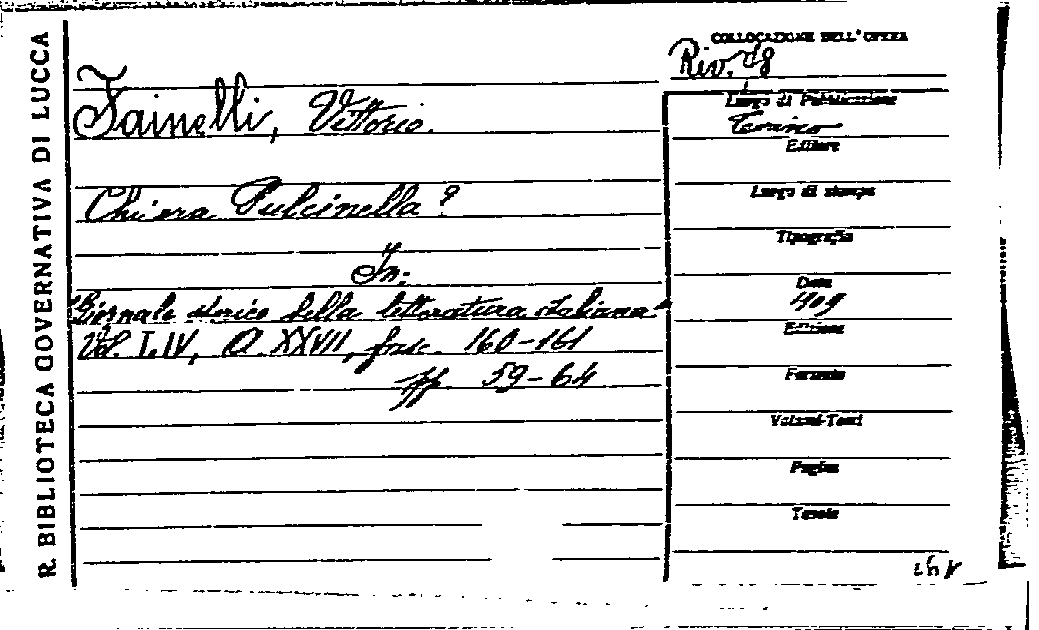 R. BIBLIOTECA GOVERNATIVA DI LUCCA
COLLOCAZIONE DELL'OPERA
Riv. 78
Fainelli, Vittorio.
Luogo di Pubblicazione
Torino
Editore
Chi era Pulcinella?
Luogo di stampa
Tipografia
In:
Data
909
"Giornale storico della letteratura italiana"
Edizione
Vol. LIV, A. XXVII, fasc. 160-161
Formato
pp. 59-64
Volumi-Tomi
Pagine
Tavole